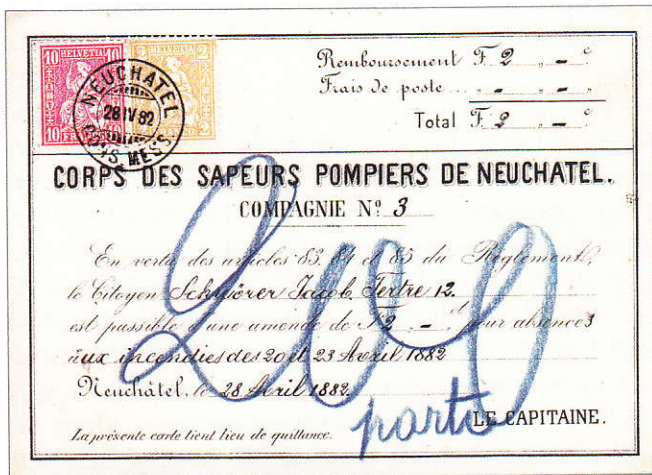 10 HELVETIA 10
2 HELVETIA 2
10 FRANCO 10
FRANCO
NEUCHATEL
28 IV 82
CONS. MESS.
Remboursement F. 2 „ – „ c
Frais de poste ... „ - „ – „
Total F. 2 „ – „ c
CORPS DES SAPEURS POMPIERS DE NEUCHATEL.
COMPAGNIE Nº 3
En vertu des articles 83, 84 et 85 du Réglement,
le Citoyen Schwörer Jacob, Tertre 12.
est passible d'une amende de f 2 „ – „ pour absences
aux incendies des 20 et 23 Avril 1882
Neuchâtel, le 28 Avril 1882.
LE CAPITAINE.
La présente carte tient lieu de quittance.
200
parti